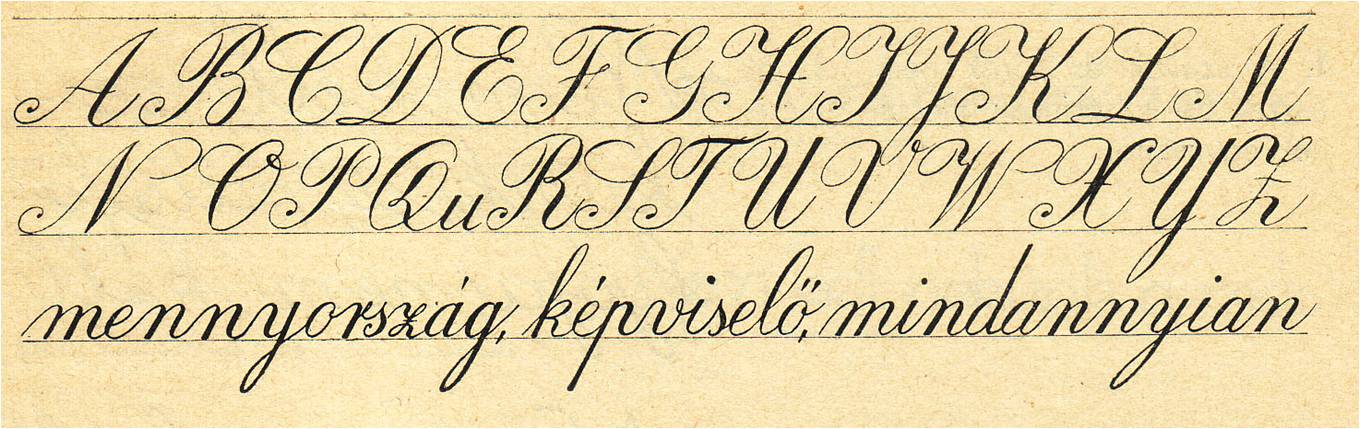 A B C D E F G H I J K L M
N O P Qu R S T U V W X Y Z
mennyország, képviselő, mindannyian